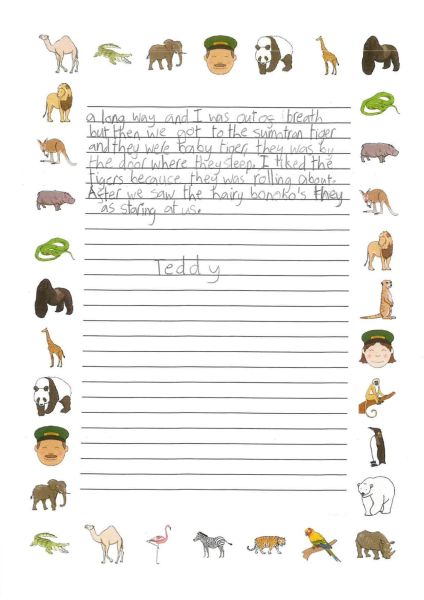 a long way and I was out of breath
but then we got to the sumtran tiger
and they were baby tiger they was by
the door where they sleep. I liked the
tigers because they was rolling about.
After we saw the hairy bonobo's they
as staring at us.
Teddy